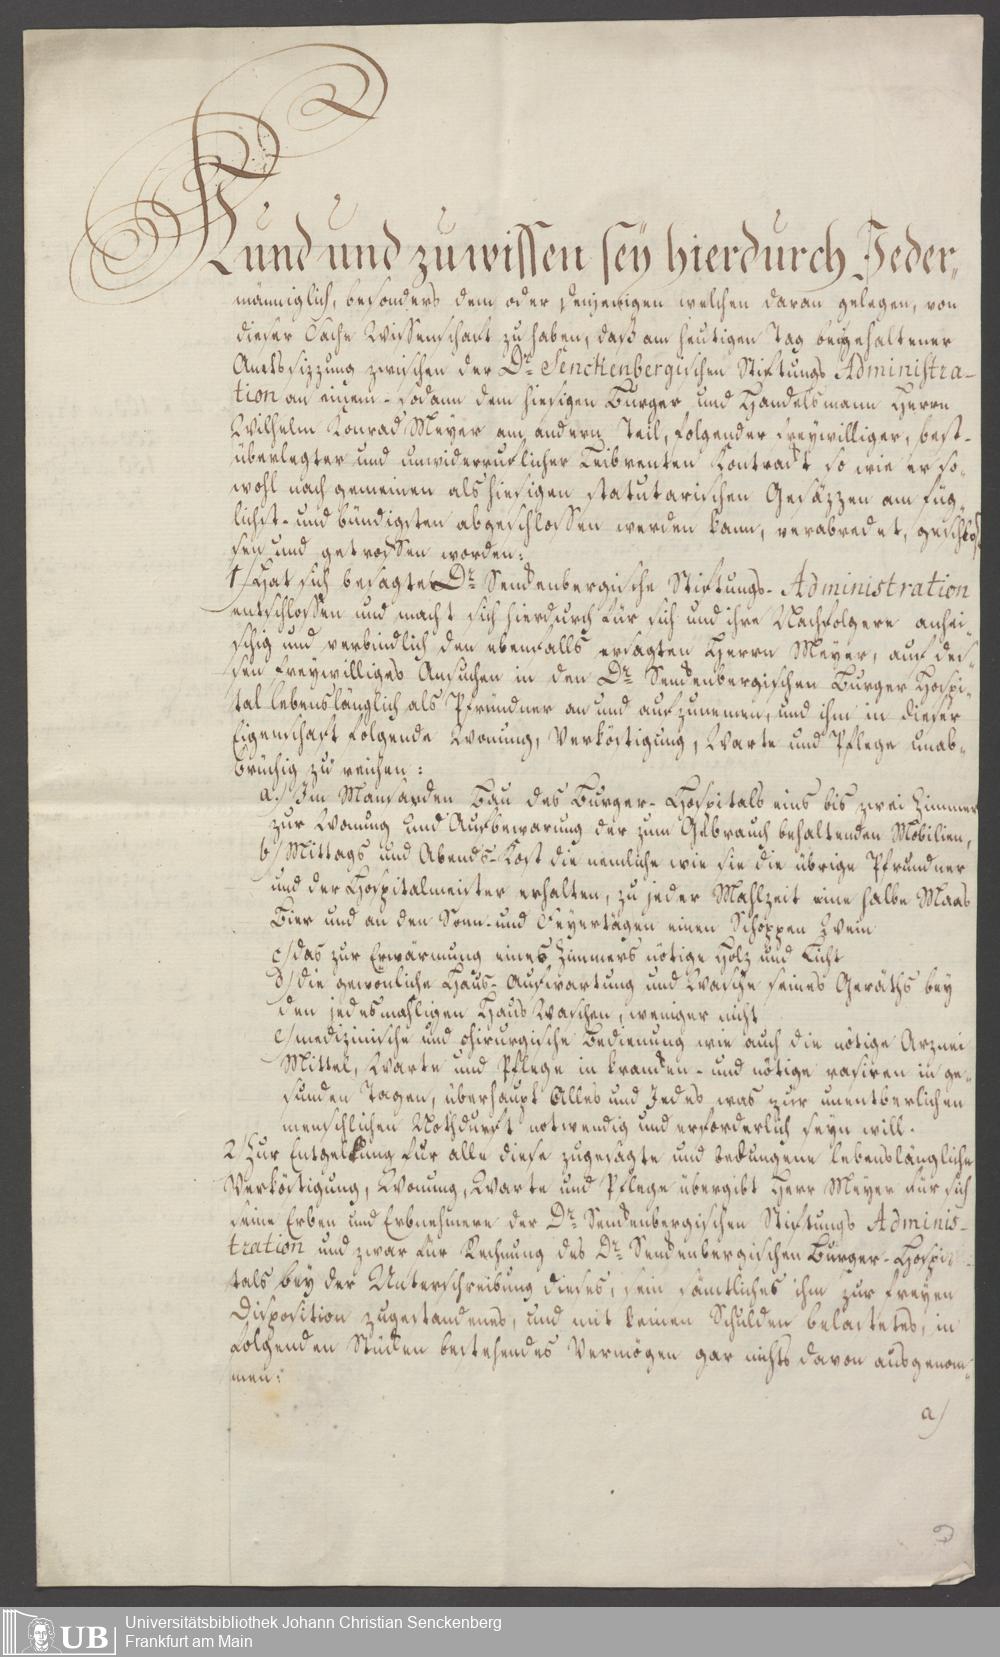 Kund und zu wissen seÿ hierdurch Jeder„
männiglich, besonders dem oder denjenigen welchen daran gelegen, von
dieser Sache Wissenschaft zu haben, daß am heutigen Tag beÿgehaltener
Amtssizzung zwischen der Dr. Senckenbergischen Stiftungs Administra-
tion an einem- sodann dem hiesigen Burger und Handelsmann Herrn
Wilhelm Konrad Meyer am andern Teil, folgender freywilliger, best-
überlegter und unwiderruflicher Leibrenten Kontrackt so wie er so„
wohl nach gemeinen als hiesigen statutarischen Gesäzzen am füg„
lichst- und bündigsten abgeschlossen werden kann, verabredet, geschlos
sen und getroffen worden:
1/ Hat sich besagte Dr. Senckenbergische Stiftungs- Administration
entschlossen und macht sich hierdurch für sich und ihre Nachfolgere anhei
schig und verbindlich den ebenfalls ersagten Herrn Meyer, auf des„
sen freywilliges Ansuchen in den Dr. Senckenbergischen Burger Hospi„
tal lebenslänglich als Pfründner an und aufzunemen, und ihm in dieser
Eigenschaft folgende Wonung, Verköstigung, Warte und Pflege unab„
brüchig zu reichen:
a./ Im Mansarden Bau des Burger- Hospitals eins bis zwei Zimmer
zur Wonung und Aufbewarung der zum Gebrauch behaltenden Mobilien,
b/ Mittags und Abends-Kost die nemliche wie sie die übrige Pfrundner
und der Hospitalmeister erhalten, zu jeder Mahlzeit eine halbe Maas
Bier und an den Sonn- und Feyertägen einen Schoppen Wein
c/ das zur Erwärmung eines Zimmers nötige Holz und Licht
d/ die gewönliche Haus- Aufwartung und Wasche seines Geräths bey
den jedesmahligen Haus Waschen, weniger nicht
e/ medizinische und chirurgische Bedienung wie auch die nötige Arznei
Mittel, Warte und Pflege in krancken- und nötige rasiren in ge„
sunden Tagen, überhaupt Alles und Jedes was zur unentberlichen
menschlichen Nothdurft notwendig und erforderlich seyn will.
2/ Zur Entgeltung für alle diese zugesagte und bedungene lebenslängliche
Verköstigung, Wonung, Warte und Pflege übergibt Herr Meyer für sich
seine Erben und Erbnehmere der Dr. Senckenbergischen Stiftungs Adminis-
tration und zwar für Rechnung des Dr. Senckenbergischen Burger-Hospi
tals bey der Unterschreibung dieses, sein sämtliches ihm zur freyen
Disposition zugestandenes, und mit keinen Schulden belastetes, in
folgenden Stücken bestehendes Vermögen gar nichts davon ausgenom„
men:
a/
UB
Universitätsbibliothek Johann Christian Senckenberg
Frankfurt am Main